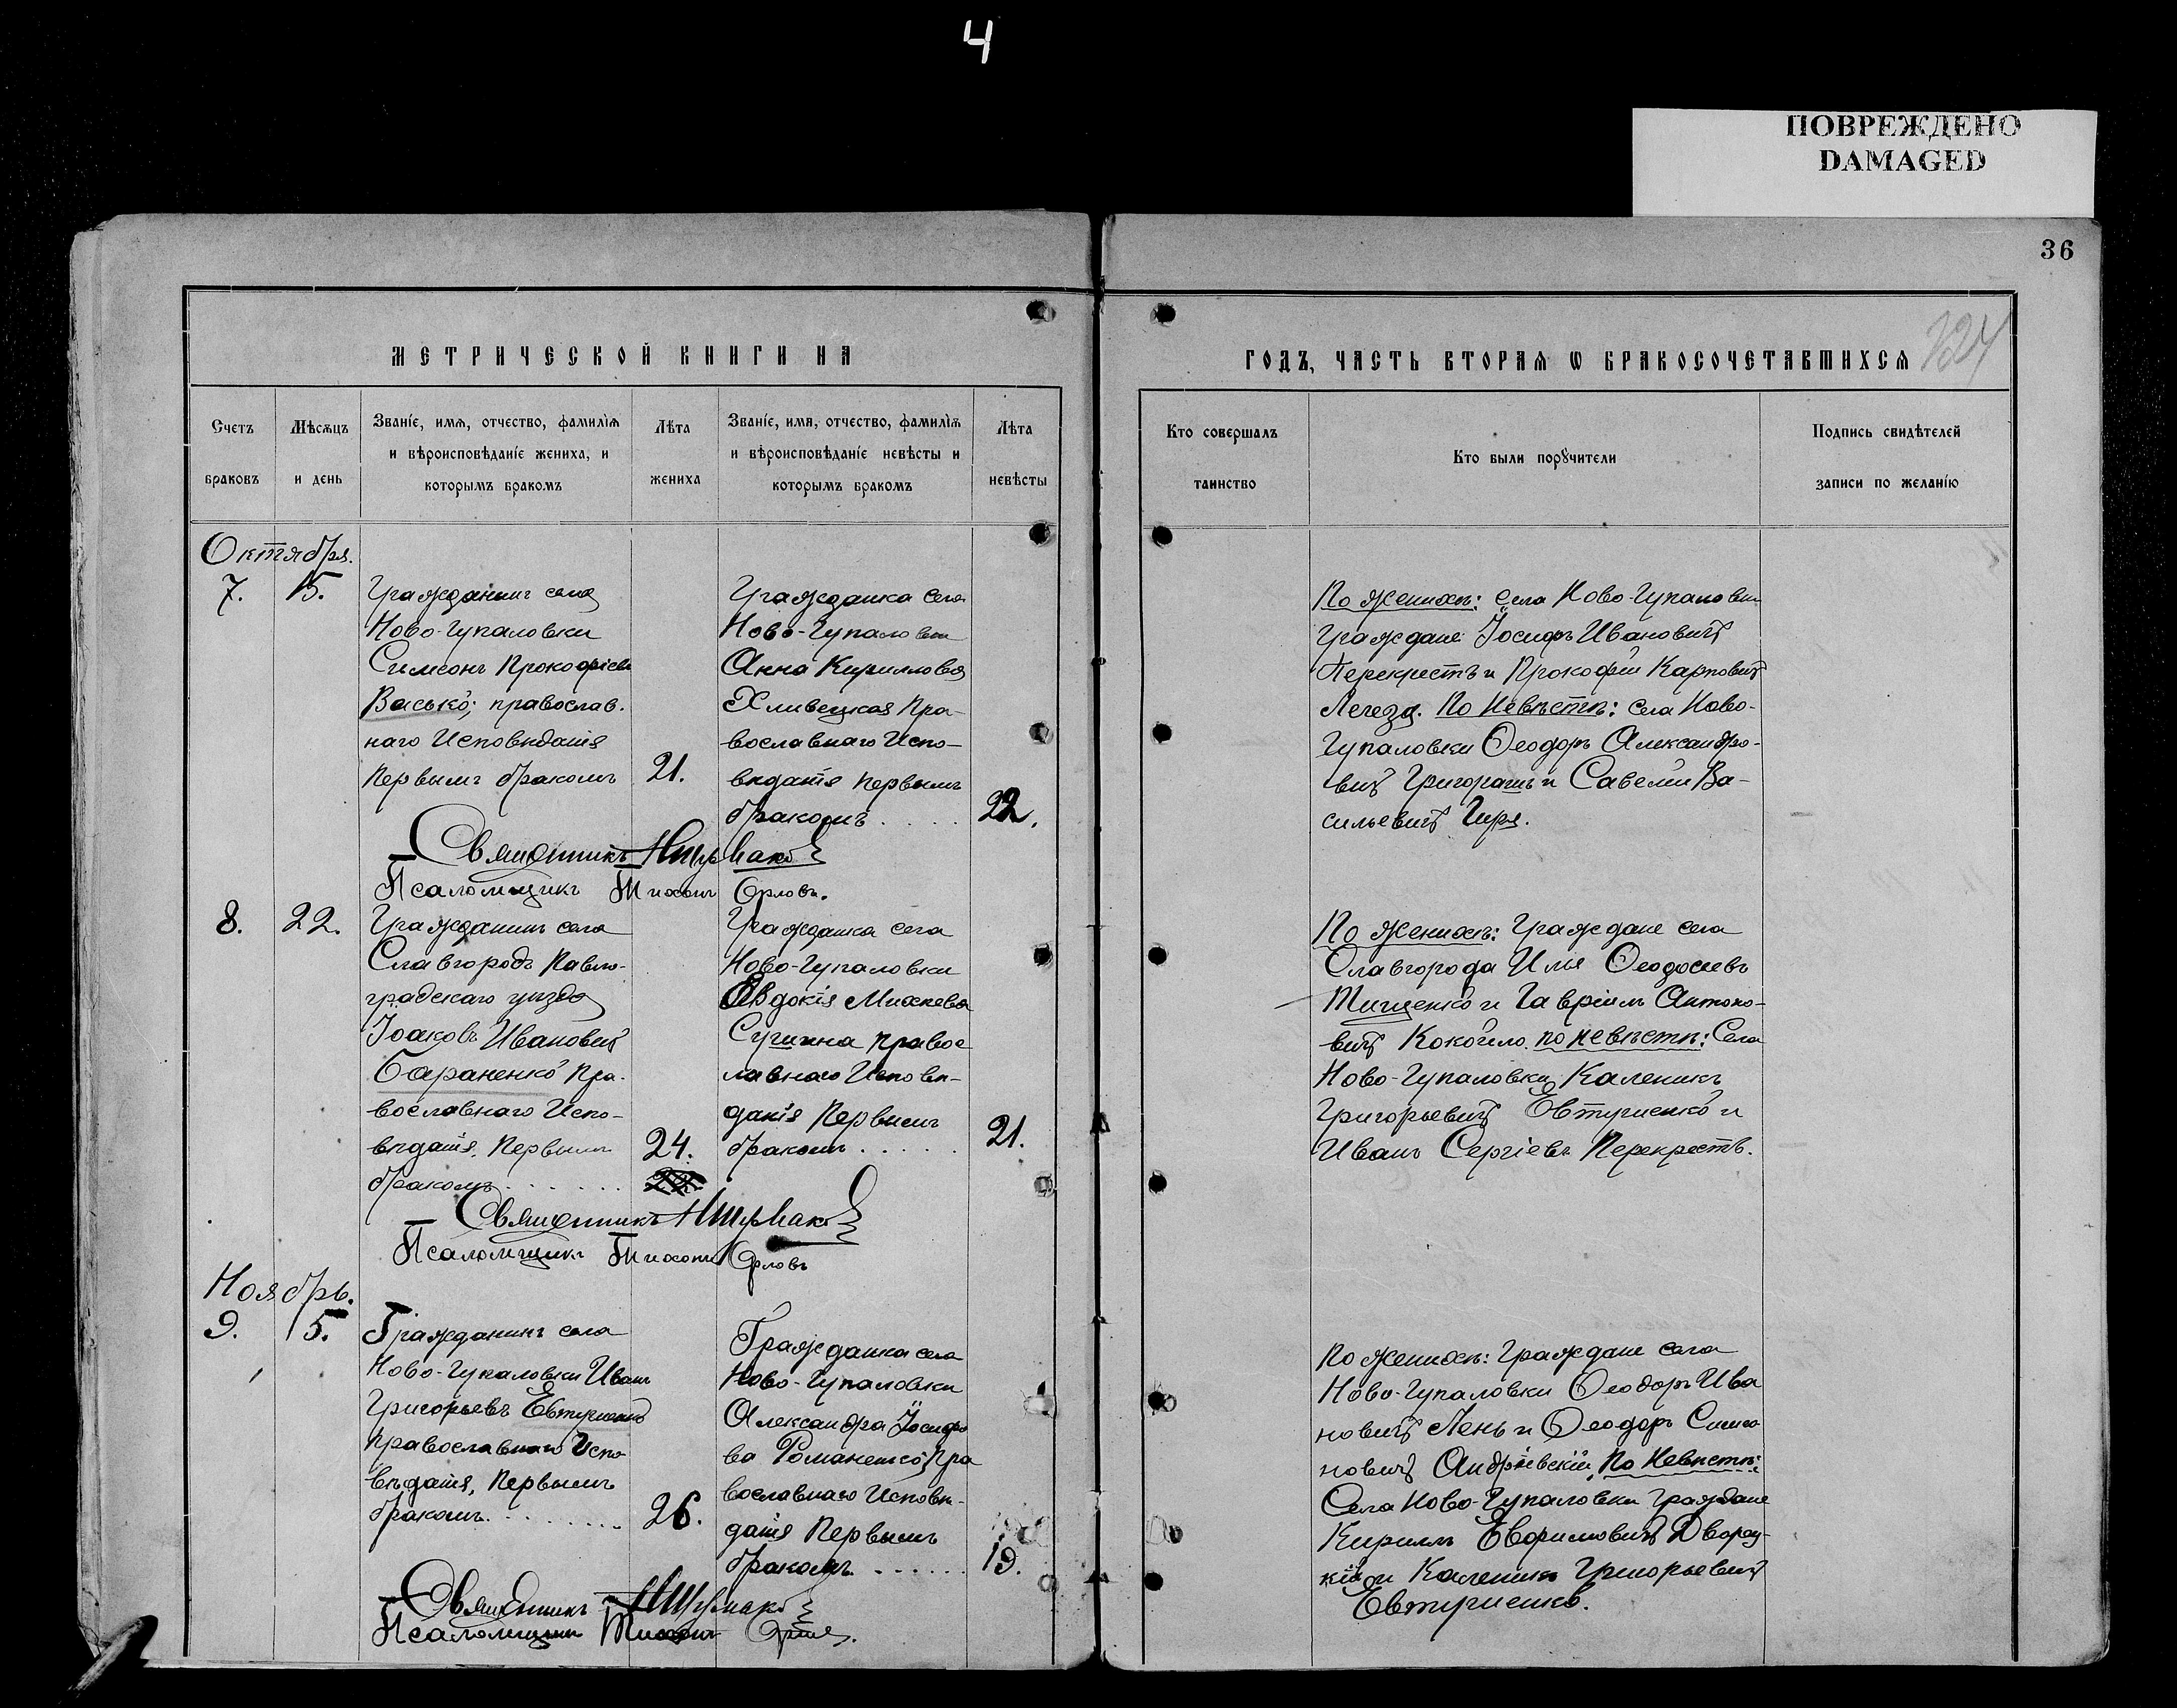 4
ПОВРЕЖДЕНО
DAMAGED
36
МЕТРИЧЕСКОЙ КНИГИ НА
ГОДЪ, ЧАСТЬ ВТОРАЯ Ѡ БРАКОСОЧЕТАВШИХСЯ
Счетъ
браковъ
Мѣсяцъ
и день
Званіе, имя, отчество, фамилія
и вѣроисповѣданіе жениха, и
которымъ бракомъ
Лѣта
жениха
Званіе, имя, отчество, фамилія
и вѣроисповѣданіе невѣсты и
которымъ бракомъ
Лѣта
невѣсты
Кто совершалъ
таинство
Кто были порꙋчители
Подпись свидѣтелей
записи по желанію
Октября.
7.
15.
Гражданинъ села
Ново-Гупаловки
Симеонъ Прокофіевъ
Васько; православ.
наго Исповѣданія
Первымъ бракомъ
21.
Гражданка села
Ново-Гупаловки
Анна Кириллова
Хливецкая Пра-
вославнаго Испо-
вѣданія первымъ
бракомъ . . . .
22.
По женихѣ: Села Ново-Гупаловки
Граждане Іосифъ Ивановичъ
Перекрестъ и Прокофій Карповичъ
Легеза. По Невѣстѣ: села Ново-
Гупаловки Ѳеодоръ Александро-
вичъ Григорашъ и Савелій Ва-
сильевичъ Гиря.
Священникъ
Псаломщикъ Тихонъ Орловъ.
8.
22.
Гражданинъ села
Славгородъ Павло-
градскаго уѣзда
Іоаковъ Ивановичъ
Бараненко Пра-
вославнаго Испо-
вѣданія, Первымъ
бракомъ . . . . . .
24.
Гражданка села
Ново-Гупаловки
Евдокія Михеева
правос
лавнаго Исповѣ-
данія Первымъ
бракомъ . . . . .
21.
По женихѣ: Граждане села
Славгорода Илья Ѳеодосіевъ
Тищенко и Гавріилъ Антоно-
вичъ по невѣстѣ: Села
Ново-Гупаловки Каленикъ
Григорьевичъ Евтушенко и
Иванъ Сергіевъ Перекрестъ.
Священникъ
Псаломщикъ Тихонъ Орловъ
Ноябрь.
9.
5.
Гражданинъ села
Ново-Гупаловки Иванъ
Григорьевъ Евтушенко
Православнаго Испо
вѣданія, Первымъ
бракомъ . . . . . . . .
26.
Гражданка села
Ново-Гупаловки
Александра Іосифо
ва Романенко, Пра
вославнаго Исповѣ-
данія Первымъ
бракомъ . . . . . .
19.
По женихѣ: Граждане села
Ново-Гупаловки Ѳеодоръ Ива
новичъ Лень и Ѳеодоръ Симео
новичъ Андріевскій, По Невѣстѣ:
Села Ново-Гупаловки Граждане
Кириллъ Евфимовичъ Дворец-
кій и Каленикъ Григорьевичъ
Евтушенко.
Священникъ
Псаломщикъ Тихонъ Орловъ.